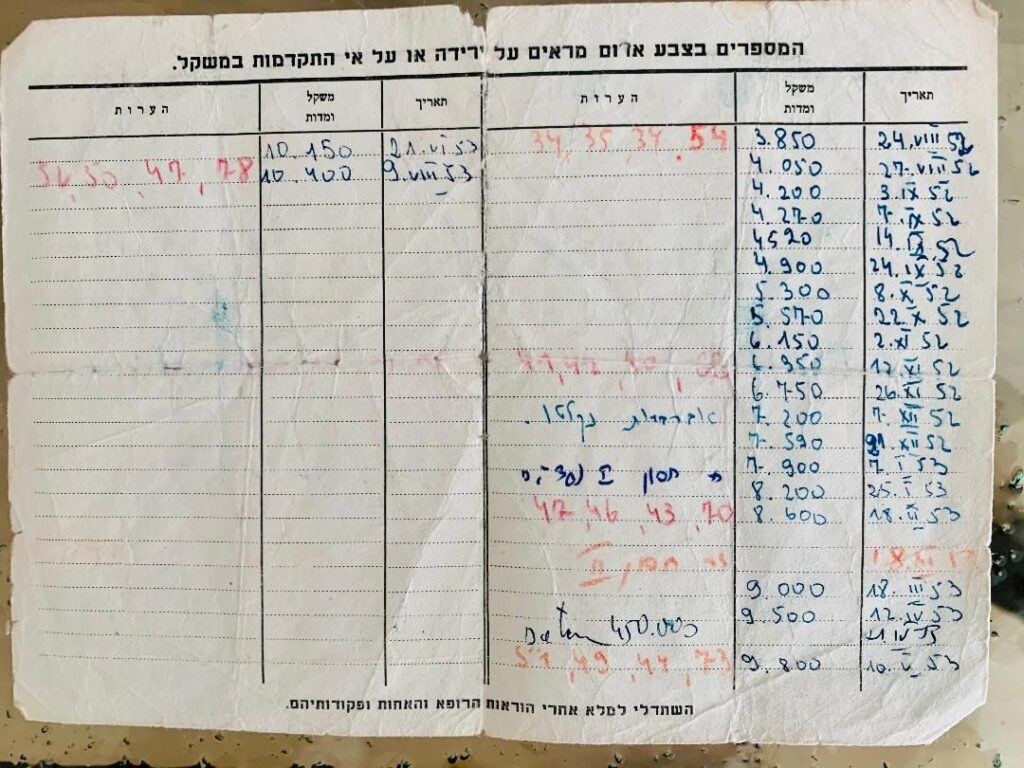 המספרים בצבע אדום מראים על ירידה או על אי התקדמות במשקל.
תאריך משקל ומדות הערות תאריך משקל ומדות הערות
24.VIII 52 3.850 34, 35, 34, 54
27.VIII 52 4.050
3.IX 52 4.200
7.IX 52 4.270
14.IX 52 4520
24.IX 52 4.900
8.X 52 5.300
22.X 52 5.570
2.XI 52 6.150
12.XI 52
26.XI 52 6.750
7.XII 52 7.200
XII 52 7.590
7.I 53 7.900 חסון II
25.I 53 8.200
18.II 53 8.600 47, 46, 43, 70
חסון II
18.III 53 9.000
12.IV 53 9.500
450.000
10.V 53 9.800 51, 49, 44, 73
21.VI 53 10.150
9.VIII 53 10.400 52, 50, 47, 78
השתדלי למלא אחרי הוראות הרופא והאחות ופקודותיהם.